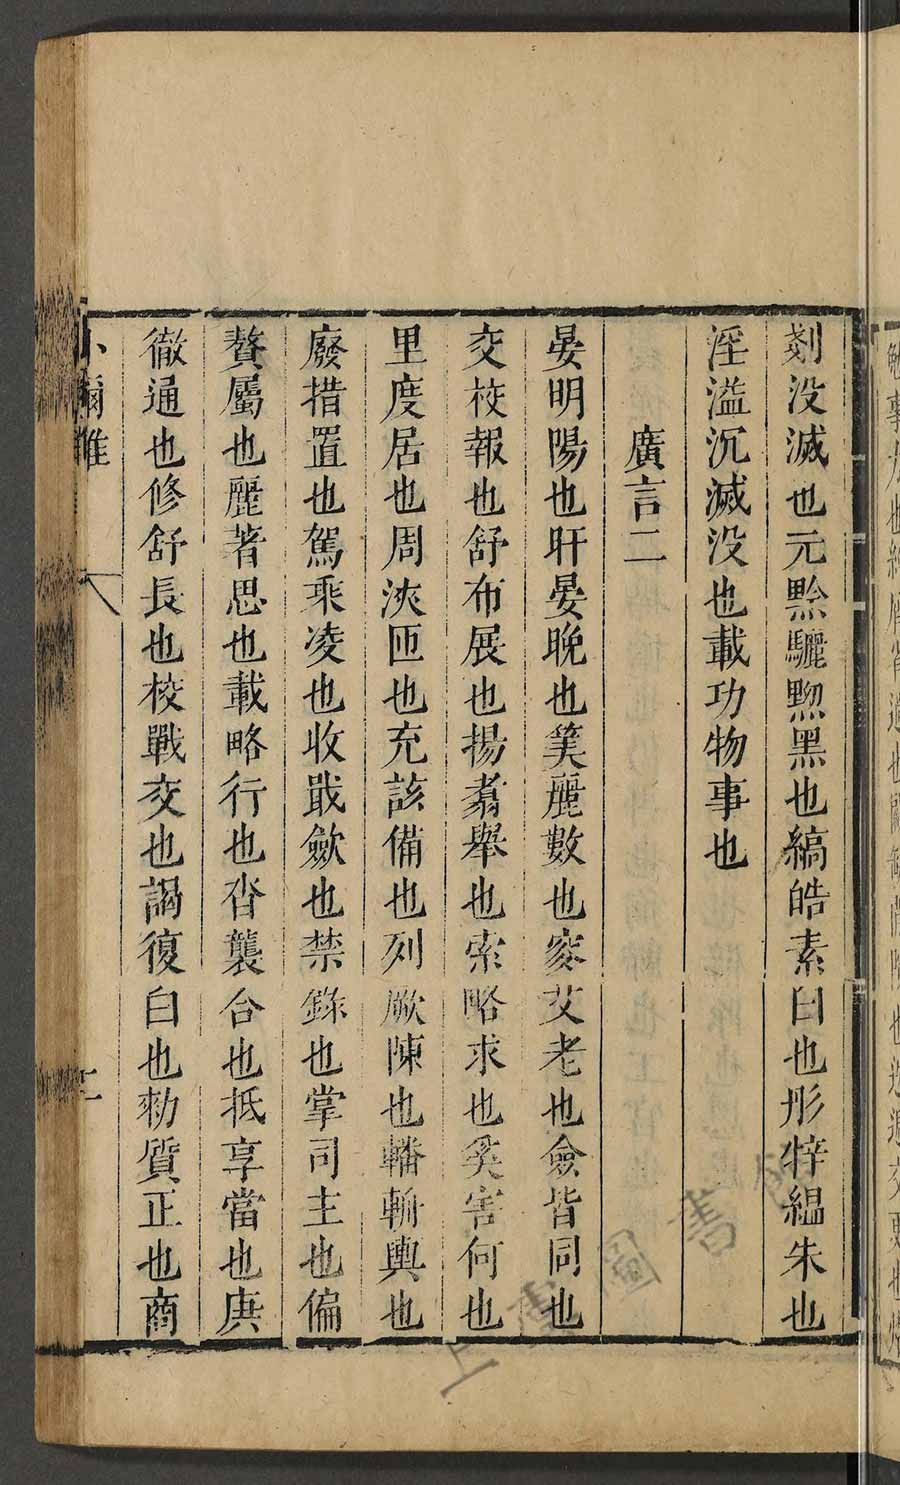 剡没滅也元黔驪黦黑也縞皓素白也彤牸縕朱也
淫溢沉滅没也載功物事也
廣言二
晏明陽也旰晏晚也筭麗數也叜艾老也僉皆同也
交校報也舒布展也揚翥舉也索略求也奚害何也
里度居也周浹匝也充該備也列厥陳也轓輈輿也
廢措置也駕乘凌也收戢斂也禁錄也掌司主也偏
贅屬也麗著思也載略行也沓襲合也抵享當也庚
徹通也修舒長也校戰交也謁復白也勑質正也商
小爾雅
二